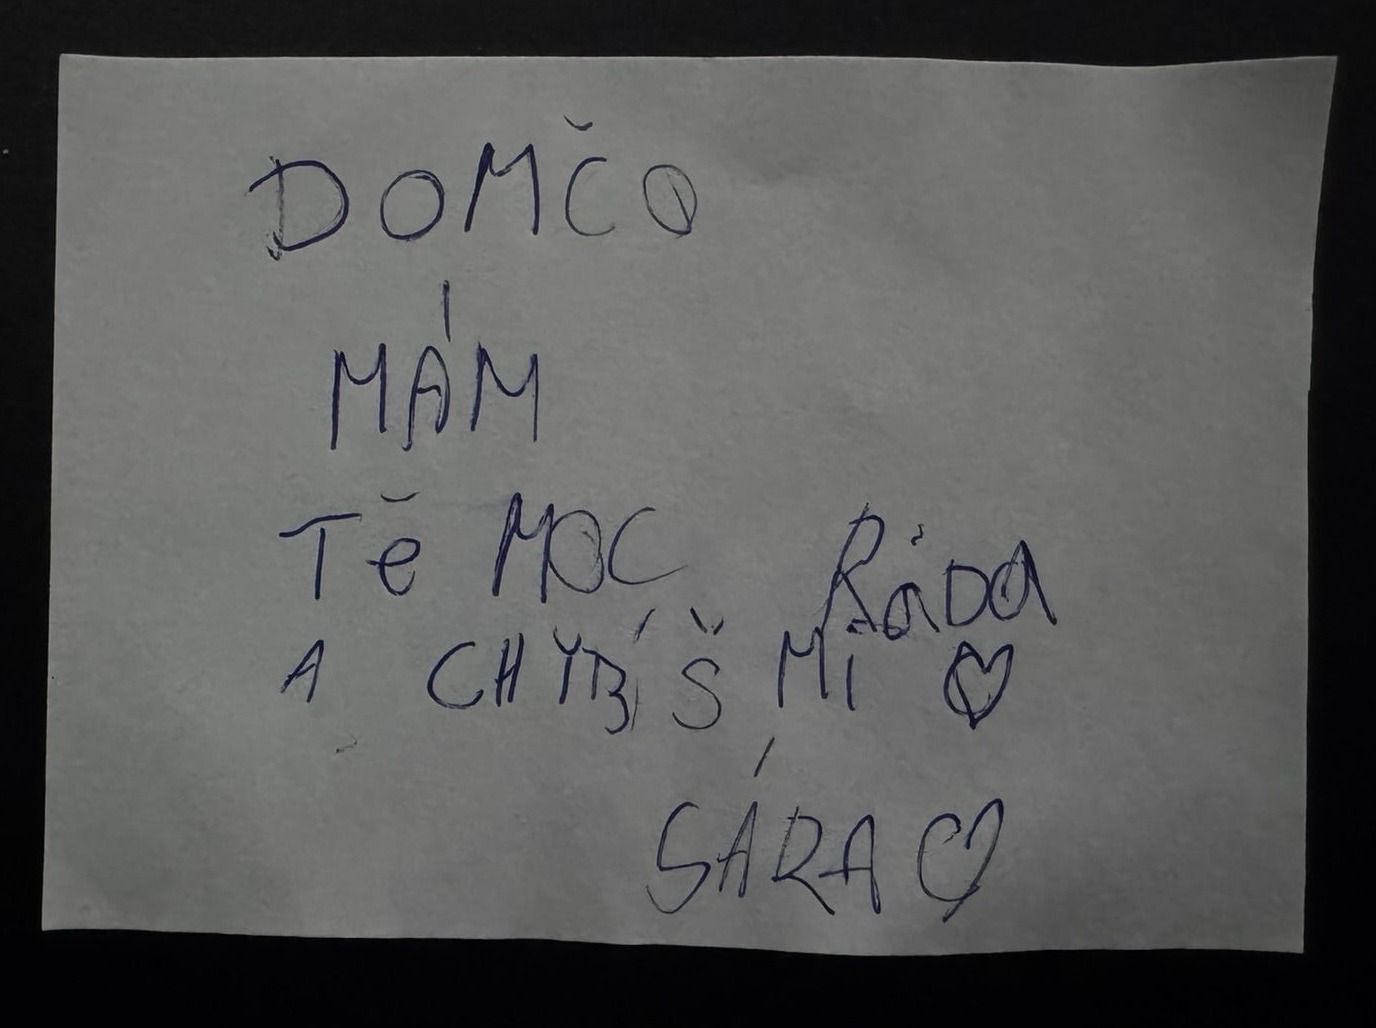 DOMČO
MÁM
Tě MOC RáDa
A CHYBÍŠ Mi ♡
SÁRA ♡